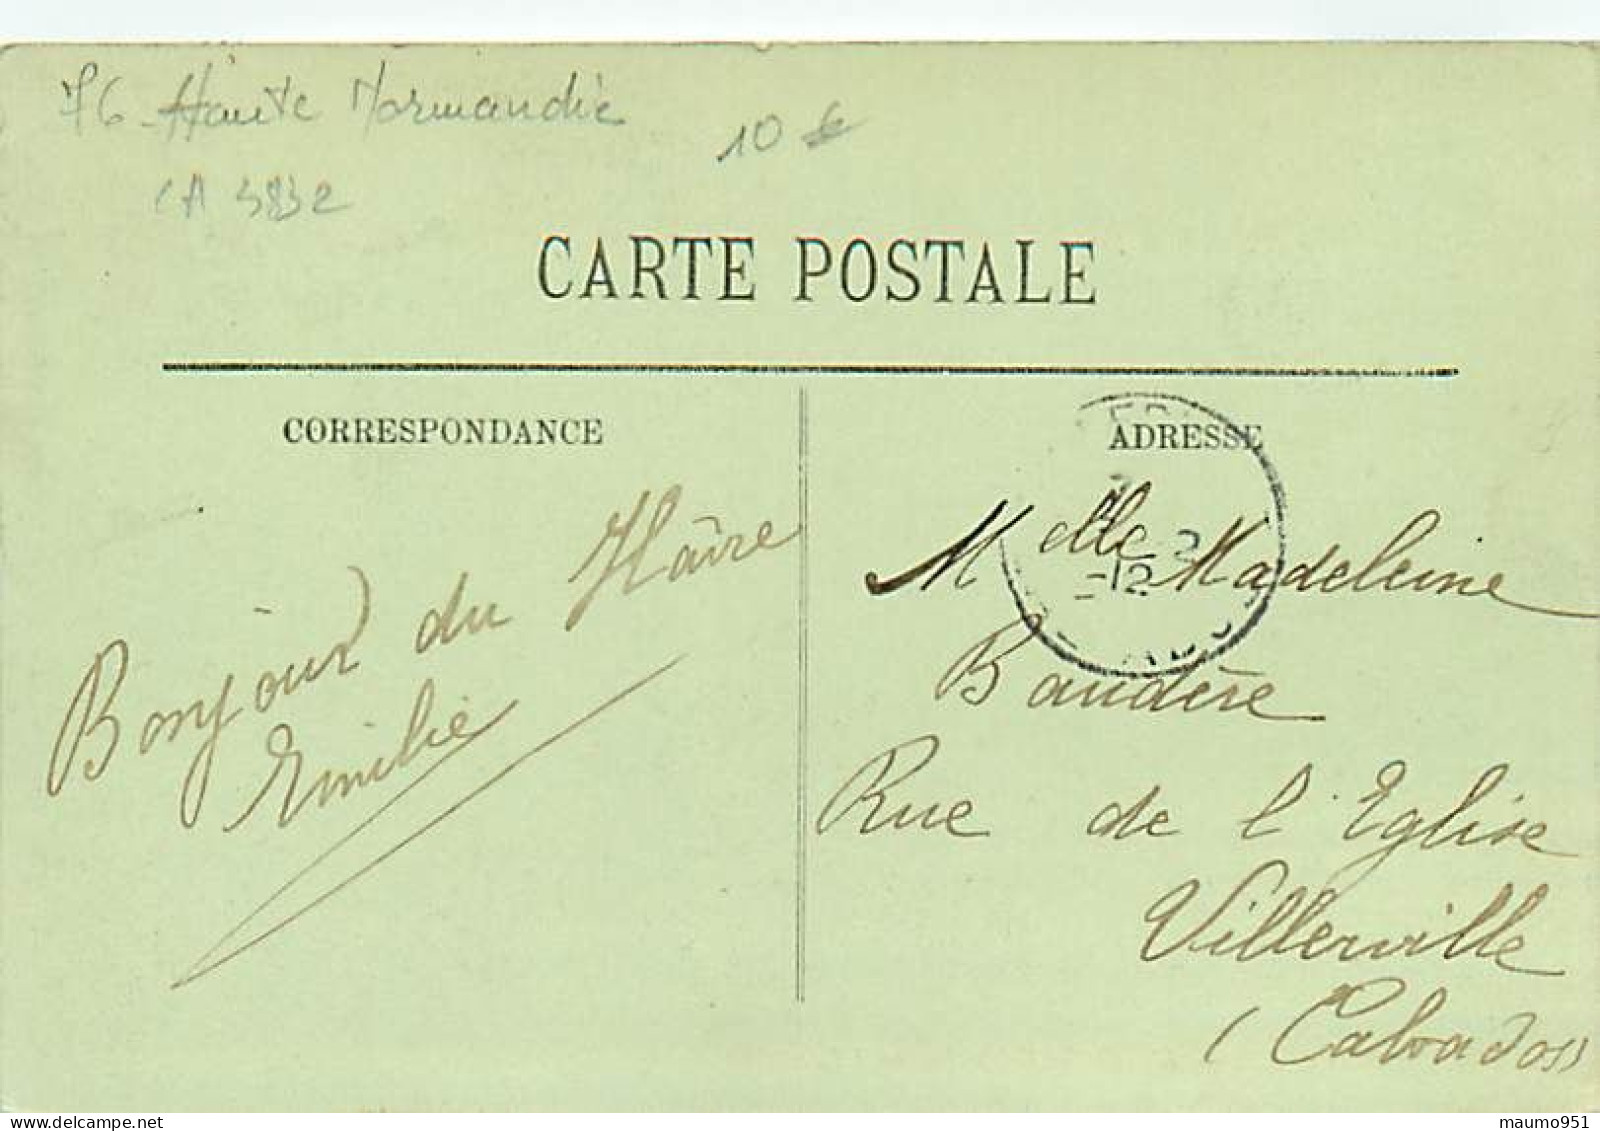 76 - Haute Normandie
10 €
CA 3832
CARTE POSTALE
CORRESPONDANCE
ADRESSE
Bonjour du Hâvre
Emilie
Melle Madeleine
Baudère
Rue de l'Eglise
Villerville
(Calvados)
maumo951